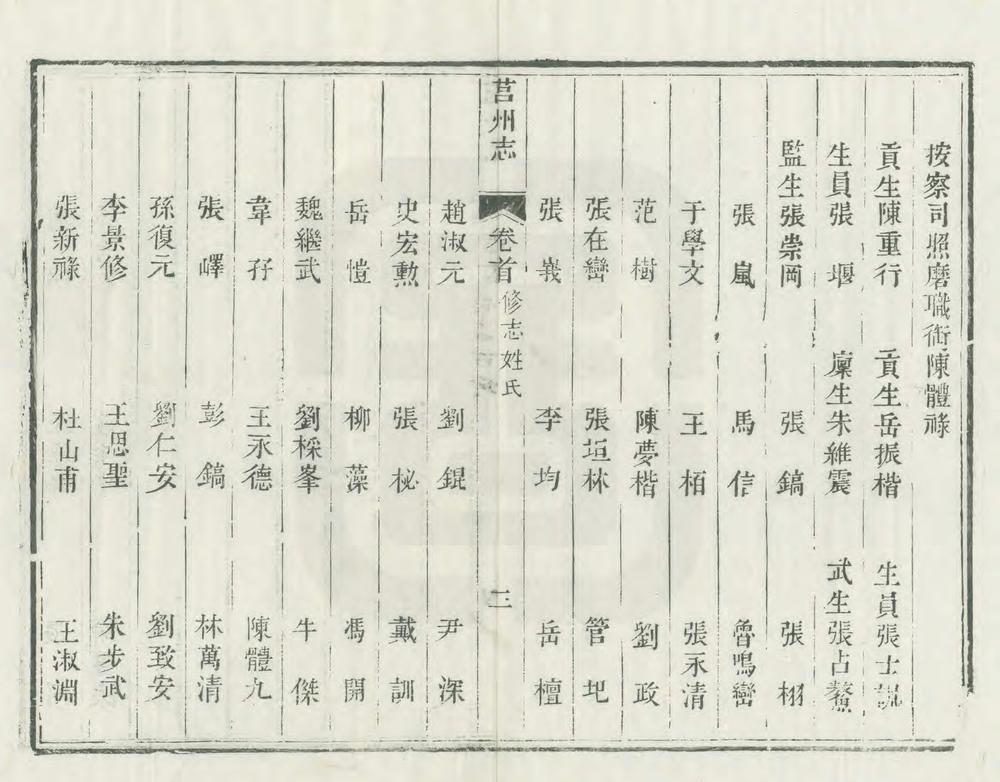 按察司照磨職銜陳體祿
貢生陳重行　貢生岳振楷　生員張士説
生員張　堰　廩生朱維震　武生張占鰲
監生張崇岡　張　鎬　張　栩
張　嵐　馬　信　魯鳴巒
于學文　王　栢　張永清
范　樹　陳夢楷　劉　政
張在巒　張垣林　管　玘
張　義　李　均　岳　檀
莒州志　卷首　修志姓氏　三
趙淑元　劉　錕　尹　深
史宏勲　張　柲　戴　訓
岳　愷　柳　藻　馮　開
魏繼武　劉棌峯　牛　傑
韋　孖　王永德　陳體九
張　嶧　彭　鎬　林萬清
孫復元　劉仁安　劉致安
李景修　王思聖　朱步武
張新祿　杜山甫　王淑淵